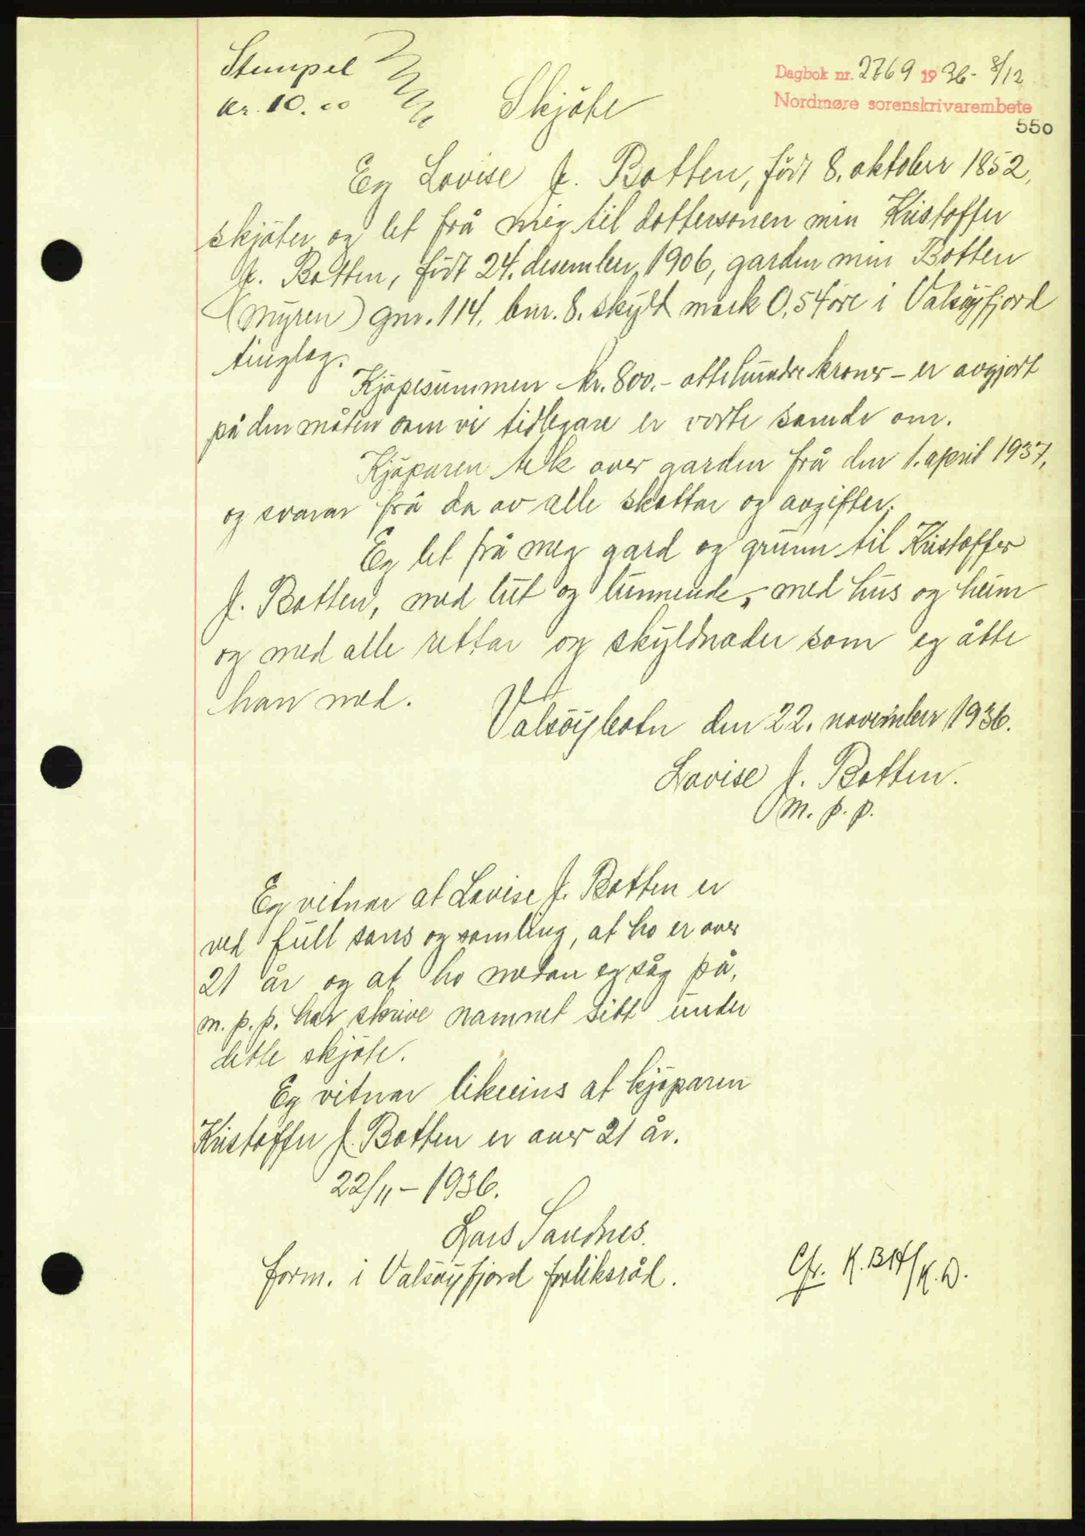 Stempel
kr. 10.00
Dagbok nr. 2769 1936 - 8/12
Nordmøre sorenskrivarembete
550
Skjøte
Eg Lovise J. Botten, født 8. oktober 1852,
skjøter og let frå meg til dottersonen min Kristoffer
J. Botten, født 24. desember 1906, garden min Botten
(Myren) gnr. 114, bnr. 8. skyld mark 0,54 øre i Valsøyfjord
tinglag.
Kjøpesummen kr. 800.- attehundre kroner - er avgjort
på den måten som vi tidlegare er vorte samde om.
Kjøparen tek over garden frå den 1. april 1937,
og svarar frå da av alle skattar og avgifter.
Eg let frå meg gard og grunn til Kristoffer
J. Botten, med lut og lunnende, med hus og heim
og med alle rettar og skyldnader som eg åtte
han med.
Valsøybotn den 22. november 1936.
Lovise J. Botten.
m. p. p.
Eg vitnar at Lovise J. Botten er
ved full sans og samling, at ho er over
21 år og at ho medan eg såg på,
m. p. p. har skrive namnet sitt under
dette skjøte.
Eg vitnar likeeins at kjøparen
Kristoffer J. Botten er over 21 år.
22/11 - 1936.
Lars Sandnes.
form. i Valsøyfjord forliksråd.
Cfr. K. BH/K.D.